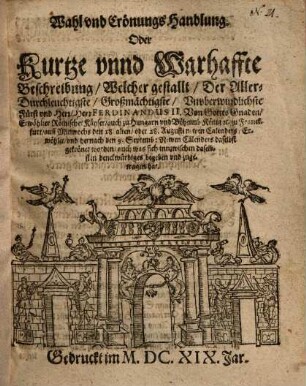 N. 21.
Wahl vnd Crönungs Handlung.
Oder
Kurtze vnnd Warhaffte
Beschreibung / Welcher gestallt / Der Aller-
Durchleuchtigste / Großmächtigste / Vnvberwündlichste
Fürst vnd Herr / Herr FERDINANDUS II. Von Gottes Gnaden /
Erwöhlter Römischer Käyser / auch zu Hungarn vnd Böhmen König / zu Franck-
furt / auff Mittwochs den 18. alten / oder 28. Augusti newen Calenders / Er-
wöhlet / vnd hernach den 9. Newen Calenders daselbst
gekrönet worden: auch was sich
sten denckwürdiges begeben vnd zuge-
tragen hat.
Gedruckt im M. DC. XIX. Jar.